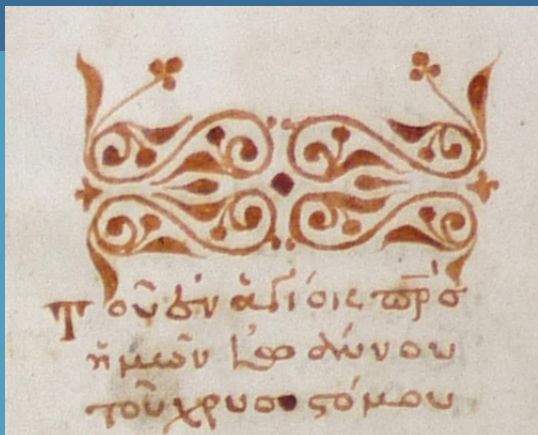 Τοῦ ἐν ἁγίοις πρσ
ἡμῶν Ἰω άννου
τοῦ χρυσοστόμου